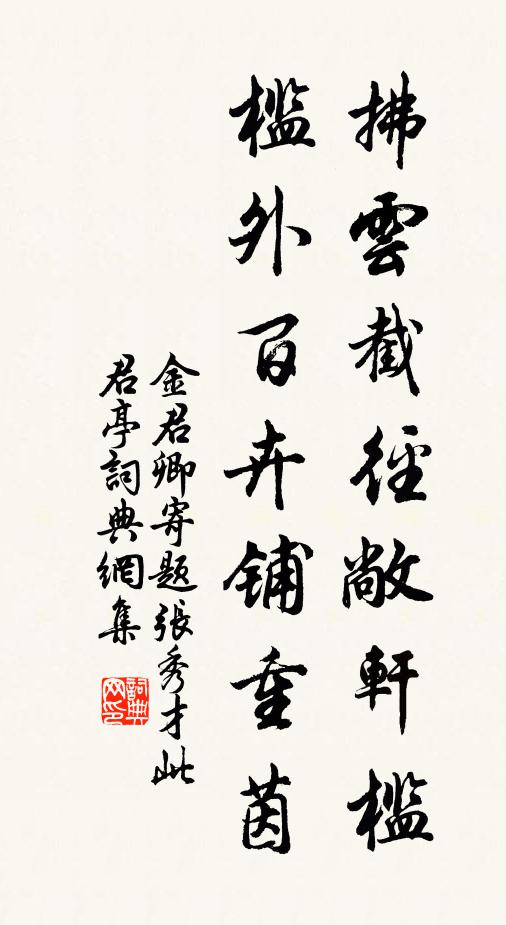 拂雲截徑敞軒檻
檻外百卉鋪重茵
金君卿寄題張秀才此
君亭詞典網集
詞典
网印